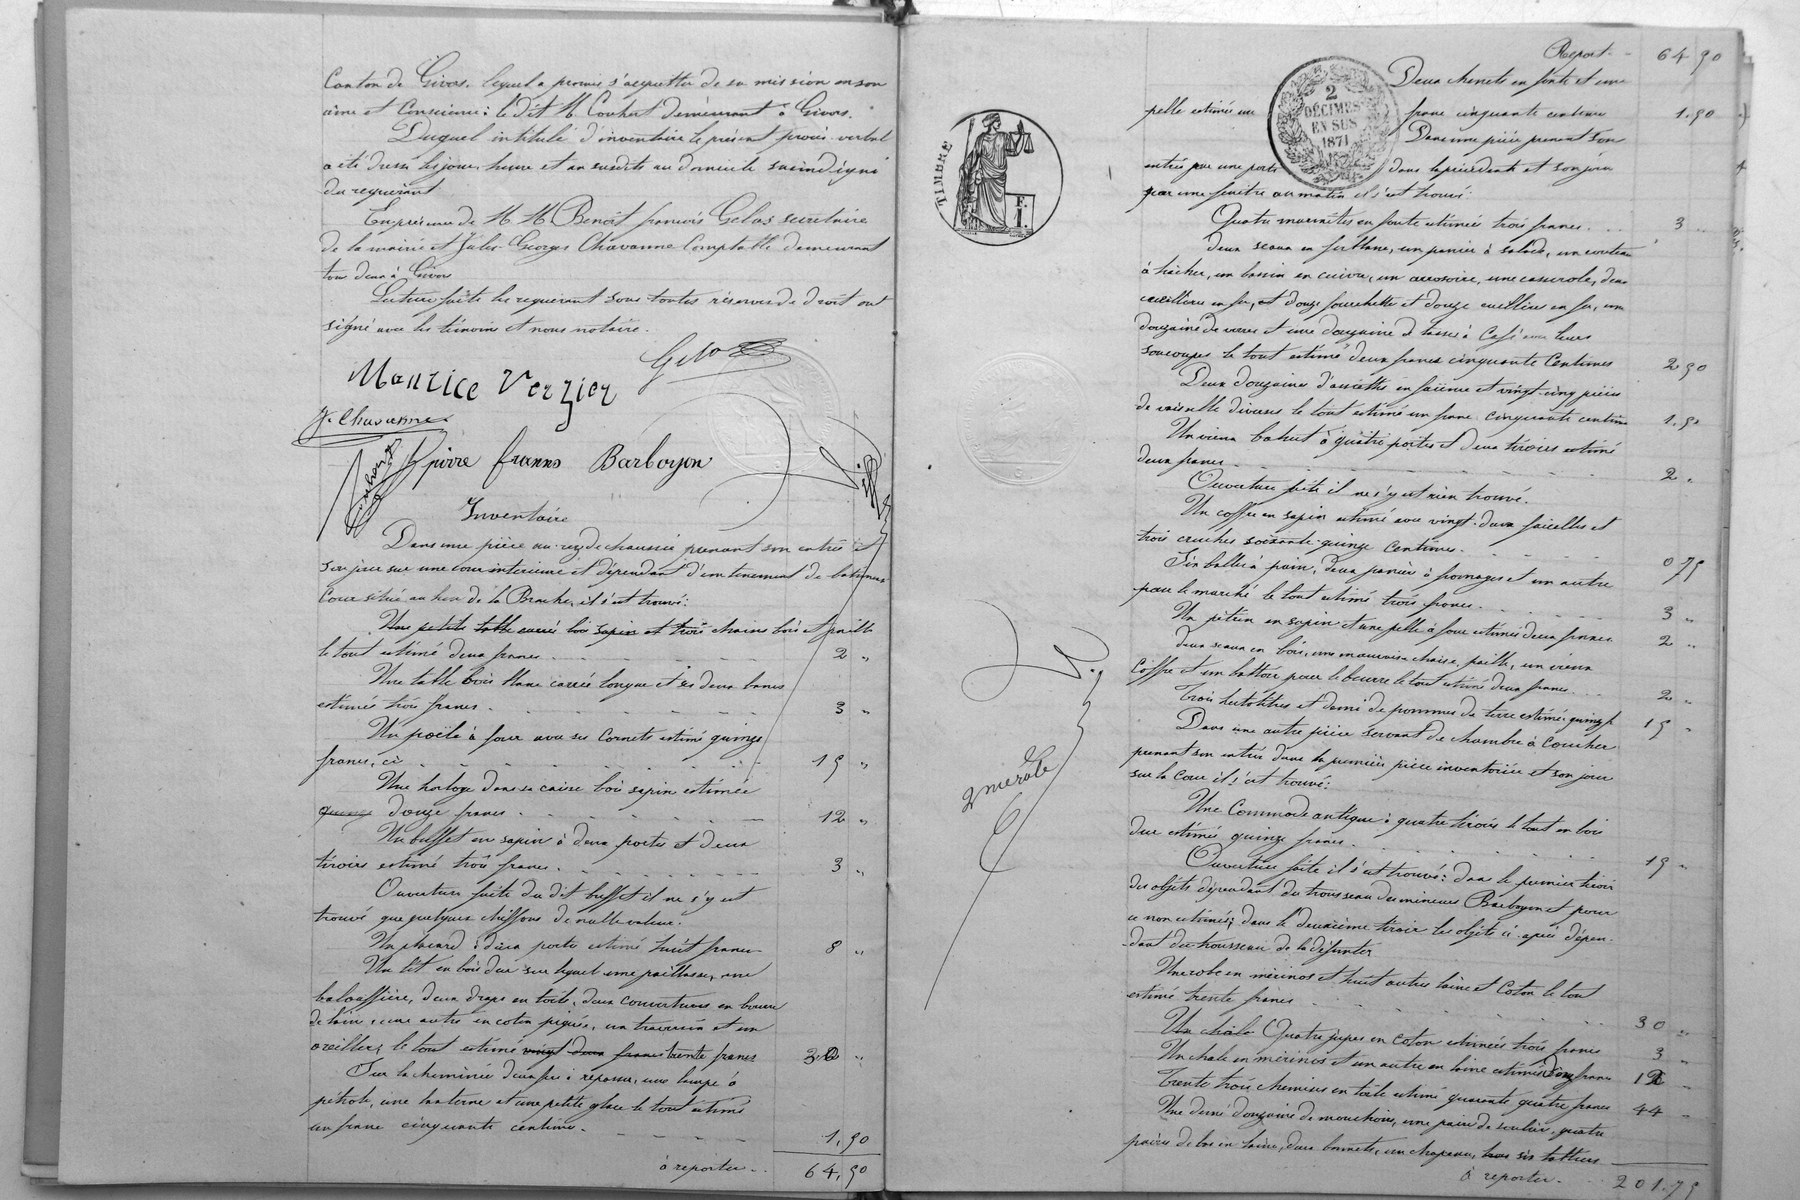 Canton de Givors, lequel a promis s'acquitter de sa mission en son
âme et Conscience: le dit M. Couhert demeurant à Givors.
Duquel intitulé d'inventaire le présent procès verbal
a été dressé les jour, heure et an susdits au domicile susindiqué
du requérant
En présence de M. M. Benoît françois Gelas secrétaire
de la mairie et Jules Georges Chavanne Comptable demeurant
tous deux à Givors
Lecture faite les requérant sous toutes réserves de droit ont
signé avec les témoins et nous notaire.
Gelas
Maurice Verzier
J. Chavanne
pierre franno Barboyon
Inventaire
Dans une pièce au rez de chaussée prenant son entrée et
son jour sur une cour intérieure et dépendant d'un tenement de batiments
Cour situé au lieu de la Brache, il s'est trouvé:
Une petite table carrée bois sapin et trois chaises bois et paille
le tout estimé deux francs 2 "
Une table bois blanc carrée longue et ses deux bancs
estimés trois francs. 3 "
Un poële à four avec ses Cornets estimé quinze
francs, ci 15 "
Une horloge dans sa caisse bois sapin estimée
quinze douze francs. 12 "
Un buffet en sapin à deux portes et deux
tiroirs estimé trois francs. 3 "
Ouverture faite du dit buffet il ne s'y est
trouvé que quelques chiffons de nulle valeur.
Un placard à deux portes estimé huit francs 8 "
Un lit en bois dur sur lequel une paillasse, une
balouffière, deux draps en toile, deux couvertures en bourre
de laine, une autre en coton piquée, un traversin et un
oreiller, le tout estimé vingt deux francs trente francs 30 "
Sur la cheminée deux fers à repasser, une lampe à
pétrole, une lanterne et une petite glace le tout estimé
un franc cinquante centimes. 1,50
à reporter 64,50
Report 64 50
Deux chenets en fonte et une
pelle estimés un franc cinquante centimes 1.50
2
DÉCIMES
EN SUS
1871
TIMBRE
F.
I.
Dans une pièce prenant son
entrée par une porte dans la précédente et son jour
par une fenêtre au matin il s'est trouvé:
Quatre marmites en fonte estimées trois francs. 3
Deux seaux en fer blanc, un panier à salade, un couteau
à hacher, un bassin en cuivre, un arrosoire, une casserole, deux
cuillers en fer, et douze fourchettes et douze cuillères en fer, une
douzaine de verres et une douzaine de tasses à Café avec leurs
soucoupes le tout estimé deux francs cinquante Centimes 2 50
Deux douzaines d'assiettes en faïence et vingt-cinq pièces
de vaisselle diverses le tout estimé un franc cinquante centimes 1.50
Un vieux bahut à quatre portes et deux tiroirs estimé
deux francs 2 "
Ouverture faite il ne s'y est rien trouvé.
Un coffre en sapin estimé avec vingt-deux faicelles et
trois cruches soixante-quinze Centimes. 0 75
Six balles à pain, deux panier à fromages et un autre
pour le marché le tout estimé trois francs. 3 "
Un pétrin en sapin et une pelle à four estimés deux francs. 2 "
Deux seaux en bois, une mauvaise chaise, paille, un vieux
Coffre et un battoir pour le beurre le tout estimé deux francs 2 "
Trois hectolitres et demi de pommes de terre estimés quinze f. 15 "
Dans une autre pièce servant de chambre à Coucher
prenant son entrée dans la première pièce inventoriée et son jour
sur la Cour il s'est trouvé:
Une Commode antique à quatre tiroirs le tout en bois
dur estimée quinze francs. 15 "
Ouverture faite il s'est trouvé: dans le premier tiroir
des objets dépendant du trousseau des mineurs Barboyon et pour
ce non estimés; dans le deuxième tiroir les objets ci-après dépen-
dant du trousseau de la défunte
Une robe en mérinos et huit autres laine et Coton le tout
estimé trente francs 30 "
Un châle Quatre jupes en coton estimées trois francs 3 "
Un chale en mérinos et un autre en laine estimés douze francs 12 "
Trente trois chemises en toile estimé quarante quatre francs 44 "
Une demi douzaine de mouchoirs, une paire de souliers, quatre
paires de bas en laine, deux bonnets, un chapeau, trois six tabliers
à reporter. 201.75